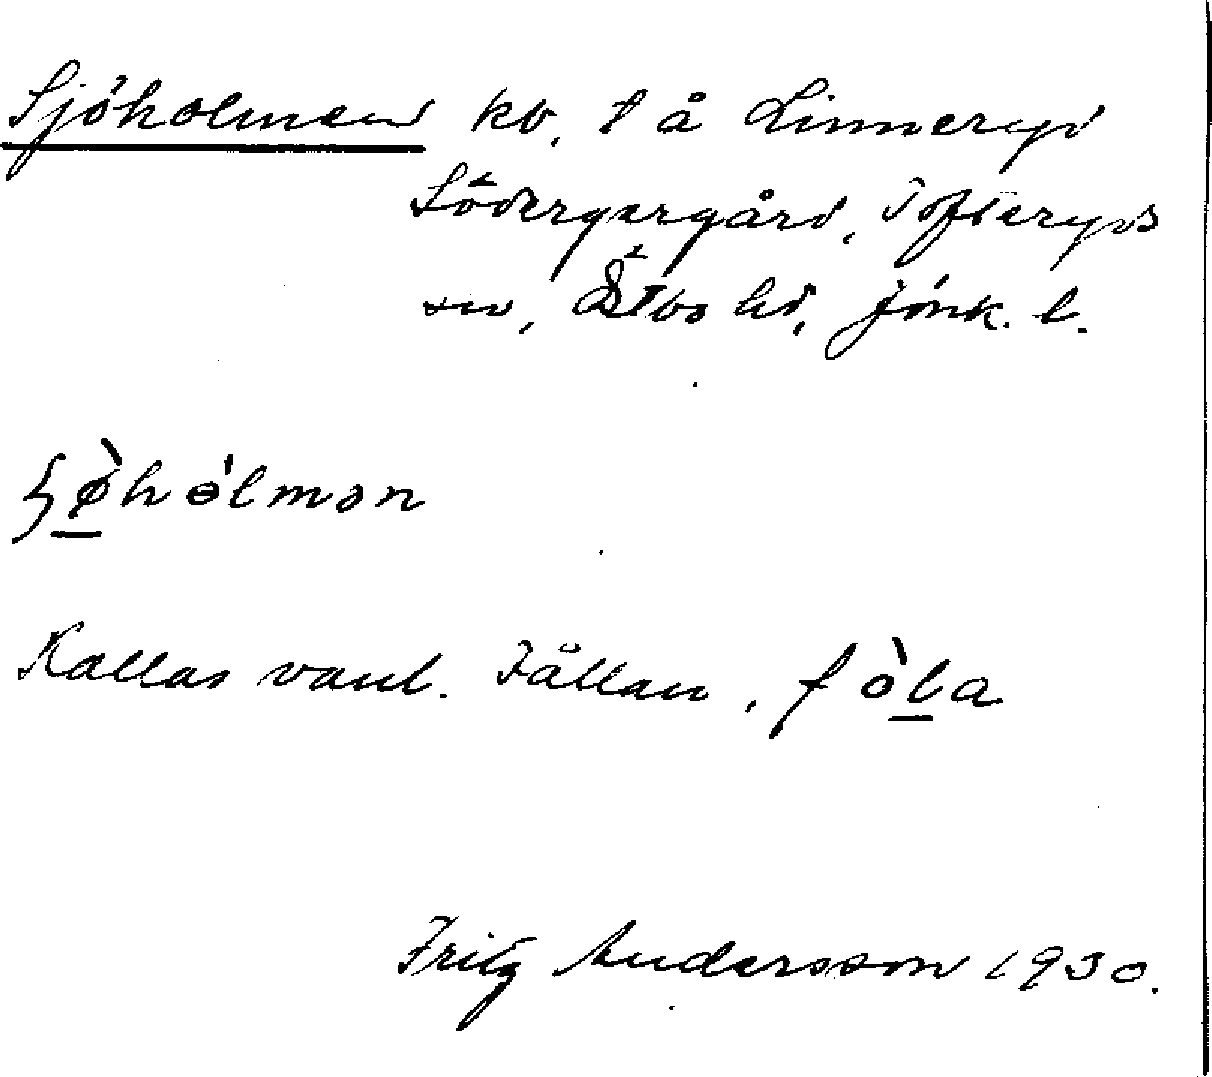 Sjöholmen kv. t å Linneryd
Södergård, Tofteryds
sn, Östbo hd, Jönk. l.
ɧø̀hólmən
Kallas vanl. Fållan, fòla
Fritz Andersson 1930.